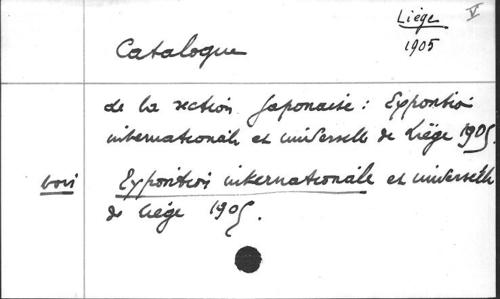 Liége V
1905
Catalogue
de la section Japonaise : Exposition
internationale et universelle de Liége 1905.
voir Exposition internationale et universelle
de Liége 1905.